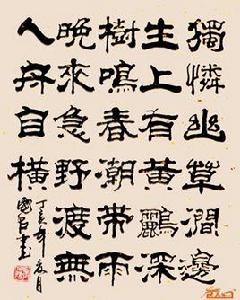 獨憐幽草澗邊
生上有黃鸝深
樹鳴春潮帶雨
晚來急野渡無
人舟自橫
丁亥年月